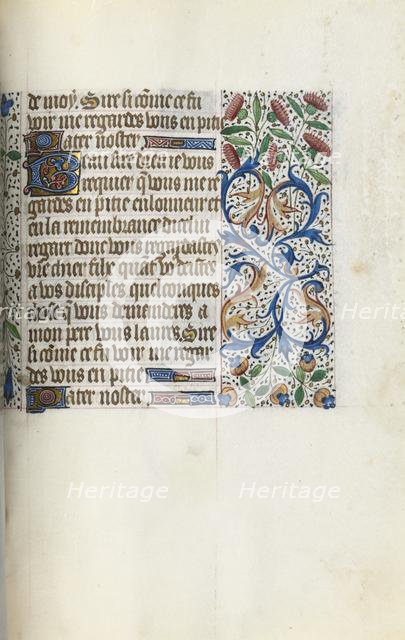 de moy. Sire si come ce fu
voir me regardes vous en pitie
Pater noster.
Beau sire dieu ie vous
requier q̄ vous me re
gardes en pitie en lonneur et
en la remembrance
regart donc vous regardastes
vr̄e chier filz quāt vous deistes
a vos disciples quelconques
vous demanderes a
mon pere vous laures. Sire
si come ce fu voir me regar
des vous en pitie
Pater noster.
Heritage
Heritage
Heritage
Heritage
Heritage